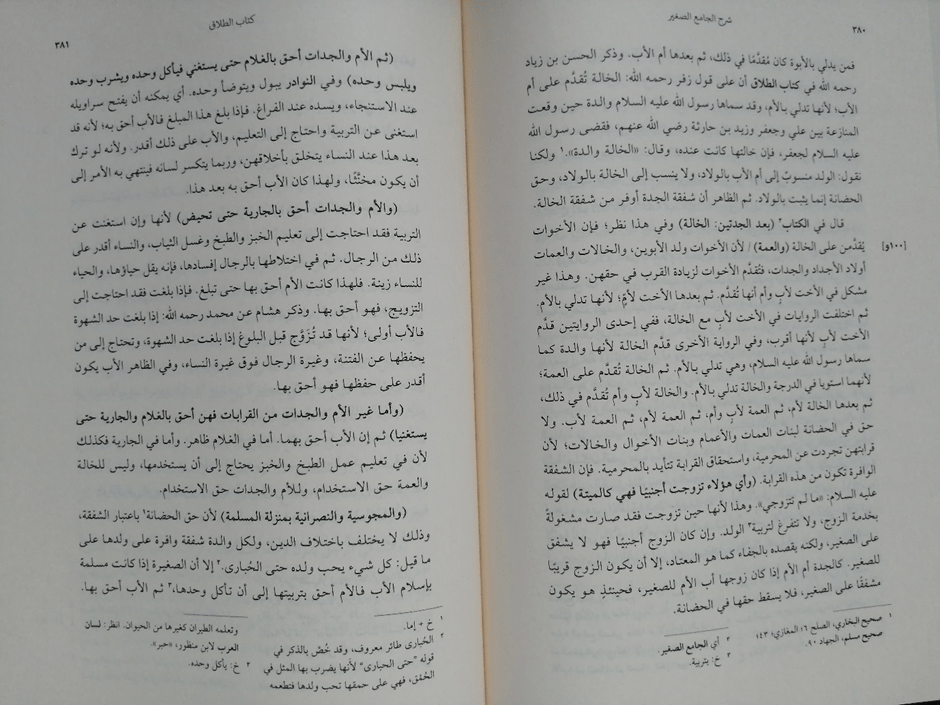 شرح الجامع الصغير
٣٨٠
فمن يدلي بالأبوة كان مُقدَّمًا في ذلك، ثم بعدها أم الأب. وذكر الحسن بن زياد
رحمه الله في كتاب الطلاق أن على قول زفر رحمه الله: الخالة تُقدَّم على أم
الأب؛ لأنها تدلي بالأم، وقد سماها رسول الله عليه السلام والدة حين وقعت
المنازعة بين علي وجعفر وزيد بن حارثة رضي الله عنهم، فقضى رسول الله
عليه السلام لجعفر، فإن خالتها كانت عنده، وقال: «الخالة والدة».١ ولكنا
نقول: الولد منسوبٌ إلى أم الأب بالولاد، ولا ينسب إلى الخالة بالولاد، وحق
الحضانة إنما يثبت بالولاد. ثم الظاهر أن شفقة الجدة أوفر من شفقة الخالة.
قال في الكتاب٢ (بعد الجدتين: الخالة) وفي هذا نظر؛ فإن الأخوات
[١٠٠و]
يُقدَّمن على الخالة (والعمة) / لأن الأخوات ولد الأبوين، والخالات والعمات
أولاد الأجداد والجدات، فتُقدَّم الأخوات لزيادة القرب في حقهن. وهذا غير
مشكل في الأخت لأبٍ وأم أنها تُقدَّم. ثم بعدها الأخت لأمٍّ؛ لأنها تدلي بالأم.
ثم اختلفت الروايات في الأخت لأبٍ مع الخالة، ففي إحدى الروايتين قدَّم
الأخت لأبٍ لأنها أقرب، وفي الرواية الأخرى قدَّم الخالة لأنها والدة كما
سماها رسول الله عليه السلام، وهي تدلي بالأم. ثم الخالة تُقدَّم على العمة؛
لأنهما استويا في الدرجة والخالة تدلي بالأم. والخالة لأبٍ وأم تُقدَّم في ذلك،
ثم بعدها الخالة لأم، ثم العمة لأبٍ وأم، ثم العمة لأم، ثم العمة لأب. ولا
حق في الحضانة لبنات العمات والأعمام وبنات الأخوال والخالات؛ لأن
قرابتهن تجردت عن المحرمية، واستحقاق القرابة تتأيد بالمحرمية. فإن الشفقة
الوافرة تكون من هذه القرابة. (وأي هؤلاء تزوجت أجنبيًا فهي كالميتة) لقوله
عليه السلام: «ما لم تتزوجي». وهذا لأنها حين تزوجت فقد صارت مشغولةً
بخدمة الزوج، ولا تتفرغ لتربية٣ الولد. وإن كان الزوج أجنبيًا فهو لا يشفق
على الصغير، ولكنه يقصده بالجفاء كما هو المعتاد، إلا أن يكون الزوج قريبًا
للصغير. كالجدة أم الأم إذا كان زوجها أب الأم للصغير، فحينئذٍ هو يكون
مشفقًا على الصغير، فلا يسقط حقها في الحضانة.
١ صحيح البخاري، الصلح ٦؛ المغازي، ٤٣؛
صحيح مسلم، الجهاد ٩٠.
٢ أي الجامع الصغير.
٣ خ: بتربية.
كتاب الطلاق
٣٨١
(ثم الأم والجدات أحق بالغلام حتى يستغني فيأكل وحده ويشرب وحده
ويلبس وحده) وفي النوادر يبول ويتوضأ وحده. أي يمكنه أن يفتح سراويله
عند الاستنجاء، ويسده عند الفراغ. فإذا بلغ هذا المبلغ فالأب أحق به؛ لأنه قد
استغنى عن التربية واحتاج إلى التعليم، والأب على ذلك أقدر. ولأنه لو ترك
بعد هذا عند النساء يتخلق بأخلاقهن، وربما يتكسر لسانه فينتهي به الأمر إلى
أن يكون مخنَّثًا، ولهذا كان الأب أحق به بعد هذا.
(والأم والجدات أحق بالجارية حتى تحيض) لأنها وإن استغنت عن
التربية فقد احتاجت إلى تعليم الخبز والطبخ وغسل الثياب، والنساء أقدر على
ذلك من الرجال. ثم في اختلاطها بالرجال إفسادها، فإنه يقل حياؤها، والحياء
للنساء زينة. فلهذا كانت الأم أحق بها حتى تبلغ. فإذا بلغت فقد احتاجت إلى
التزويج، فهو أحق بها. وذكر هشام عن محمد رحمه الله: إذا بلغت حد الشهوة
فالأب أولى؛ لأنها قد تُزَوَّج قبل البلوغ إذا بلغت حد الشهوة، وتحتاج إلى من
يحفظها عن الفتنة، وغيرة الرجال فوق غيرة النساء، وفي الظاهر الأب يكون
أقدر على حفظها فهو أحق بها.
(وأما غير الأم والجدات من القرابات فهن أحق بالغلام والجارية حتى
يستغنيا) ثم إن الأب أحق بهما. أما في الغلام ظاهر. وأما في الجارية فكذلك
لأن في تعليم عمل الطبخ والخبز يحتاج إلى أن يستخدمها، وليس للخالة
والعمة حق الاستخدام، وللأم والجدات حق الاستخدام.
(والمجوسية والنصرانية بمنزلة المسلمة) لأن حق الحضانة١ باعتبار الشفقة،
وذلك لا يختلف باختلاف الدين، ولكل والدة شفقة وافرة على ولدها على
ما قيل: كل شيء يحب ولده حتى الحُبارى.٢ إلا أن الصغيرة إذا كانت مسلمة
بإسلام الأب فالأم أحق بتربيتها إلى أن تأكل وحدها،٣ ثم الأب أحق بها.
١ خ + إما.
٢ الحُبارى طائر معروف، وقد خُصَّ بالذكر في
قوله «حتى الحبارى» لأنها يضرب بها المثل في
الحُمق، فهي على حمقها تحب ولدها فتطعمه
وتعلمه الطيران كغيرها من الحيوان. انظر: لسان
العرب لابن منظور، «حبر».
٣ خ: يأكل وحده.